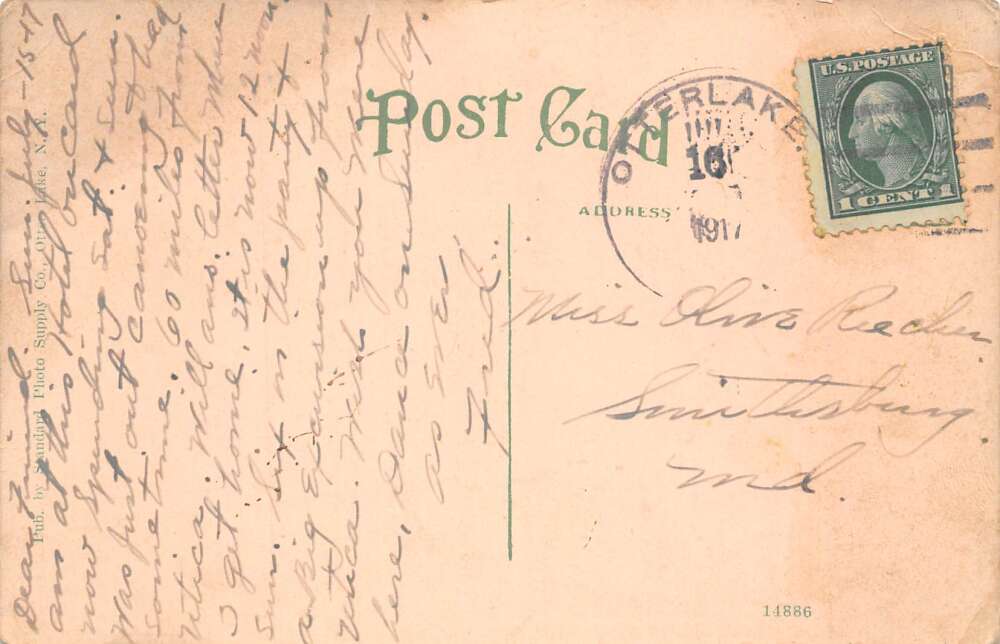 Post Card
ADDRESS
OTTERLAKE
16
1917
U.S. POSTAGE
1 CENT 1
Miss Olive
Smithsburg
Md.
14886
Pub. by Standard Photo Supply Co., Otter Lake, N. Y.
Dear Friend, Sun. July-15-17
am at this Hotel on card
now spending Sat. & Sun.
Was just out Canoeing & had
some time. 60 miles from
Utica. Will ans. letter when
I get home. It is now 12 noon
Sun. Six in the party &
a Big Excursion up from
Utica. Wish you were
here, Dance on Sunday.
as Ever
Fred.